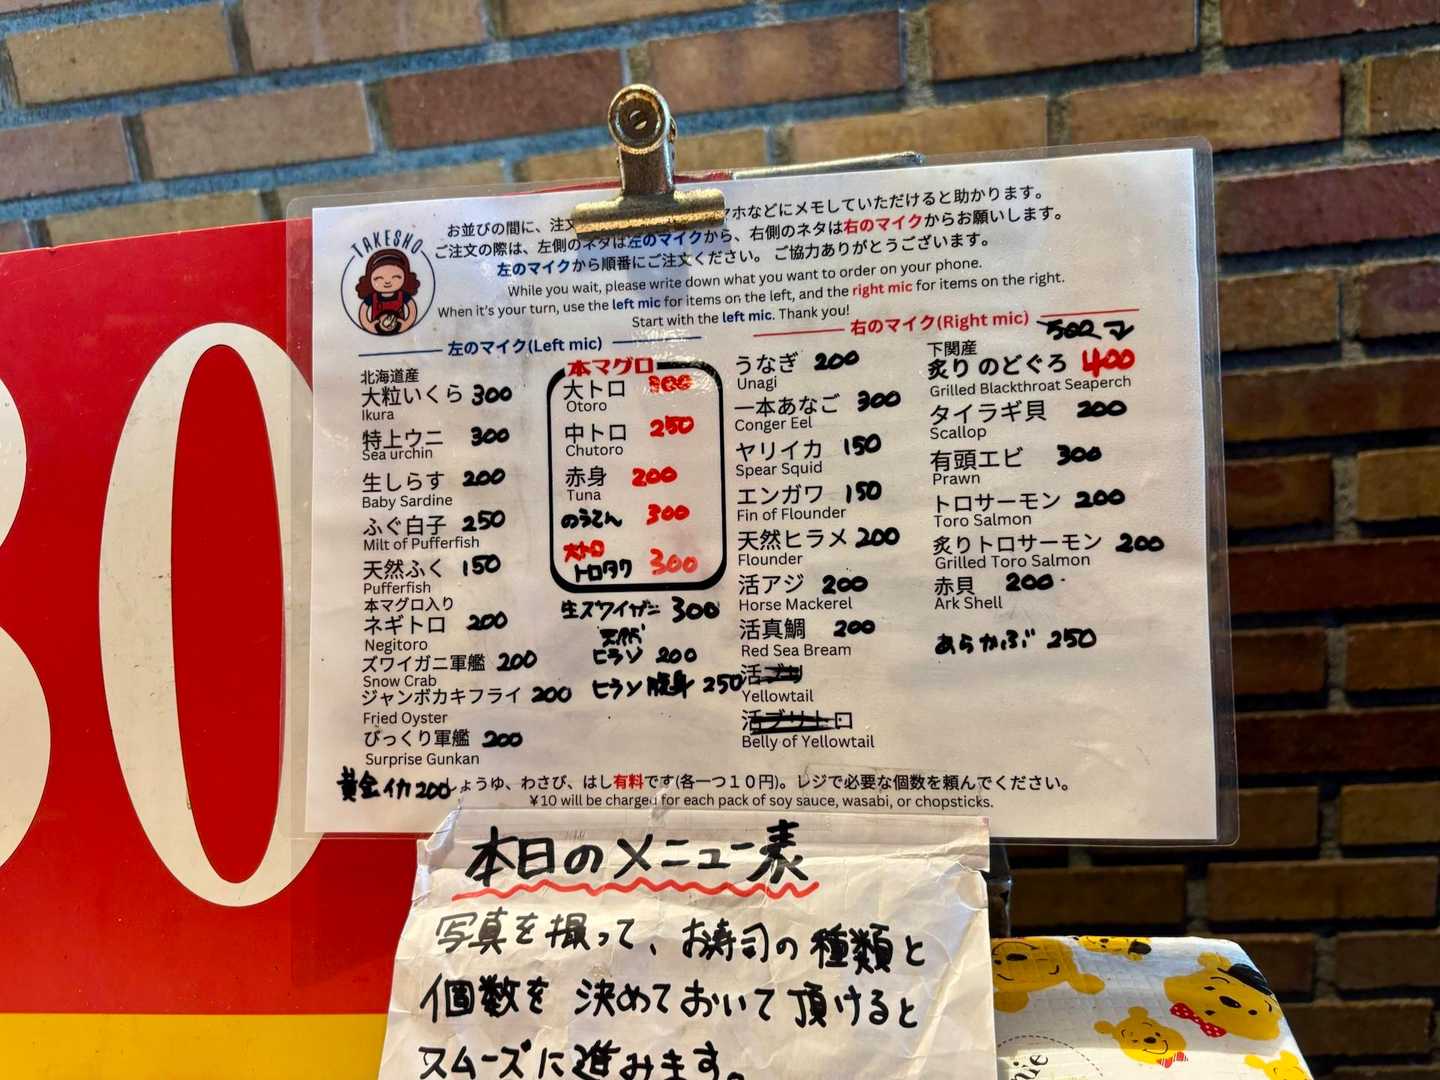 TAKESHO
お並びの間に、注文
ホなどにメモしていただけると助かります。
ご注文の際は、左側のネタは左のマイクから、右側のネタは右のマイクからお願いします。
左のマイクから順番にご注文ください。 ご協力ありがとうございます。
While you wait, please write down what you want to order on your phone.
When it's your turn, use the left mic for items on the left, and the right mic for items on the right.
Start with the left mic. Thank you!
左のマイク(Left mic)
北海道産
大粒いくら 300
Ikura
特上ウニ 300
Sea urchin
生しらす 200
Baby Sardine
ふぐ白子 250
Milt of Pufferfish
天然ふぐ 150
Pufferfish
本マグロ入り
ネギトロ 200
Negitoro
ズワイガニ軍艦 200
Snow Crab
ジャンボカキフライ 200
Fried Oyster
びっくり軍艦 200
Surprise Gunkan
黄金イカ 200
本マグロ
大トロ 300
Otoro
中トロ 250
Chutoro
赤身 200
Tuna
のうてん 300
大トロ
トロタク 300
生ズワイガニ 300
天然
ヒラソ 200
ヒラソ腹身 250
右のマイク(Right mic)
うなぎ 200
Unagi
一本あなご 300
Conger Eel
ヤリイカ 150
Spear Squid
エンガワ 150
Fin of Flounder
天然ヒラメ 200
Flounder
活アジ 200
Horse Mackerel
活真鯛 200
Red Sea Bream
活ブリ
Yellowtail
活ブリトロ
Belly of Yellowtail
下関産
炙り のどぐろ 400
Grilled Blackthroat Seaperch
タイラギ貝 200
Scallop
有頭エビ 300
Prawn
トロサーモン 200
Toro Salmon
炙りトロサーモン 200
Grilled Toro Salmon
赤貝 200
Ark Shell
あらかぶ 250
しょうゆ、わさび、はし有料です(各一つ10円)。レジで必要な個数を頼んでください。
¥10 will be charged for each pack of soy sauce, wasabi, or chopsticks.
本日のメニュー表
写真を撮って、お寿司の種類と
個数を 決めておいて頂けると
スムーズに進みます。